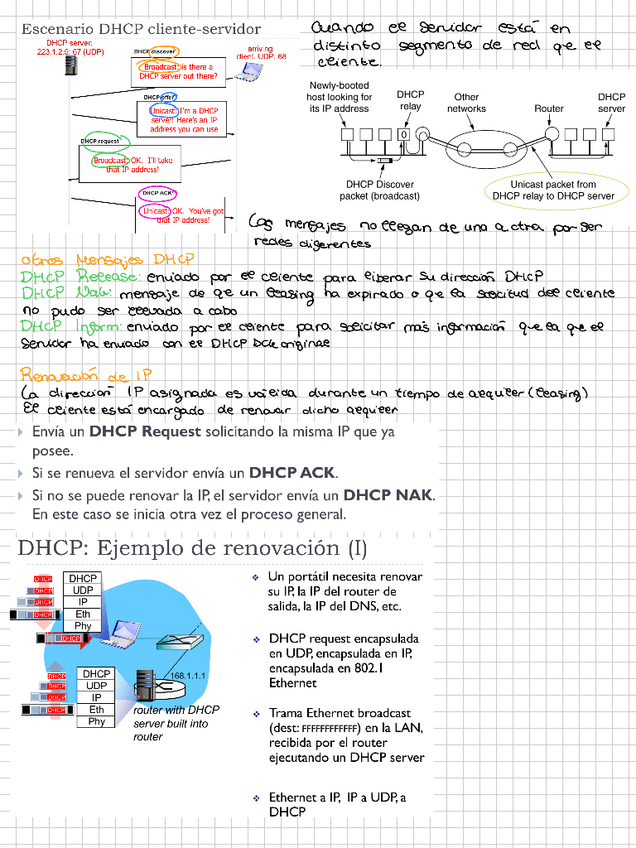 Escenario DHCP cliente-servidor
DHCP server:
223.1.2.5: 67 (UDP)
arriving
client, UDP: 68
DHCP discover
Broadcast: is there a
DHCP server out there?
DHCP offer
Unicast: I'm a DHCP
server! Here's an IP
address you can use
DHCP request
Broadcast: OK. I'll take
that IP address!
DHCP ACK
Unicast: OK. You've got
that IP address!
Cuando el servidor está en
distinto segmento de red que el
cliente.
Newly-booted
host looking for
its IP address
DHCP
relay
Other
networks
Router
DHCP
server
DHCP Discover
packet (broadcast)
Unicast packet from
DHCP relay to DHCP server
Los mensajes no llegan de una a otra por ser
redes diferentes
Otros Mensajes DHCP
DHCP Release: enviado por el cliente para liberar su dirección DHCP
DHCP Nak: mensaje de que un leasing ha expirado o que la solicitud del cliente
no pudo ser llevada a cabo
DHCP Inform: enviado por el cliente para solicitar más información que la que el
servidor ha enviado con el DHCP ACK original
Renovación de IP
La dirección IP asignada es válida durante un tiempo de alquiler (leasing)
El cliente está encargado de renovar dicho alquiler
Envía un DHCP Request solicitando la misma IP que ya
posee.
Si se renueva el servidor envía un DHCP ACK.
Si no se puede renovar la IP, el servidor envía un DHCP NAK.
En este caso se inicia otra vez el proceso general.
DHCP: Ejemplo de renovación (I)
DHCP
DHCP
DHCP
DHCP
DHCP
DHCP
UDP
IP
Eth
Phy
DHCP
DHCP
DHCP
DHCP
DHCP
UDP
IP
Eth
Phy
168.1.1.1
router with DHCP
server built into
router
Un portátil necesita renovar
su IP, la IP del router de
salida, la IP del DNS, etc.
DHCP request encapsulada
en UDP, encapsulada en IP,
encapsulada en 802.1
Ethernet
Trama Ethernet broadcast
(dest: FFFFFFFFFFFF) en la LAN,
recibida por el router
ejecutando un DHCP server
Ethernet a IP, IP a UDP, a
DHCP